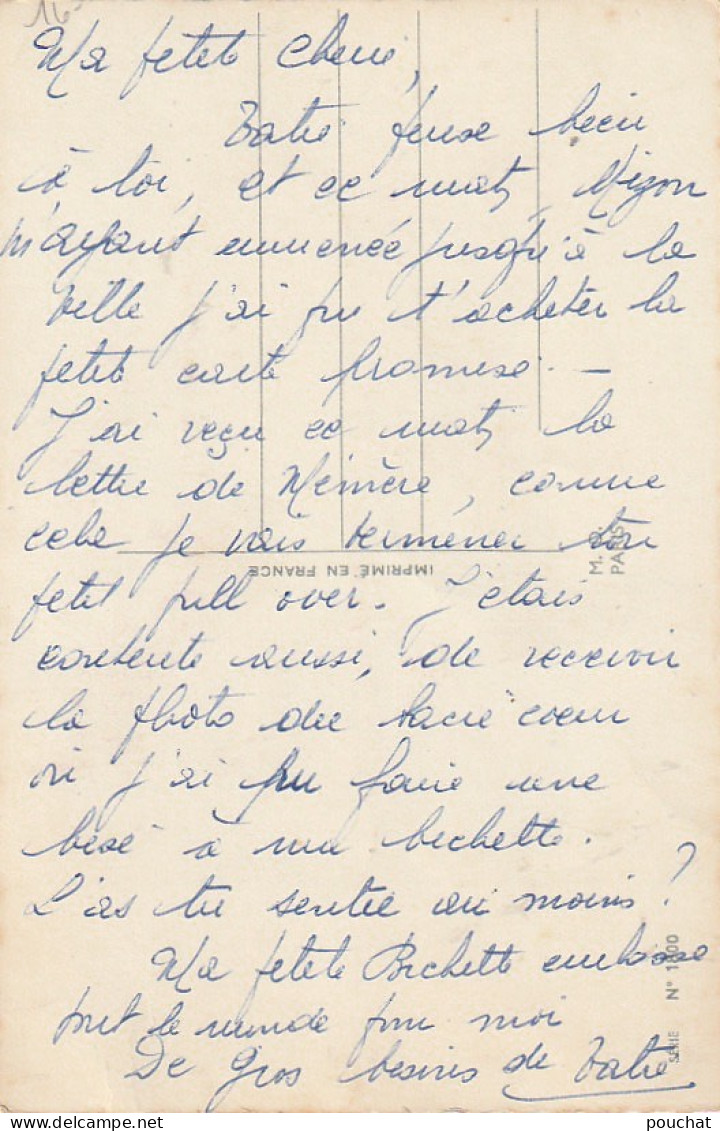 16
Ma petite Cherie,
Tatie pense becu
à toi, et ce matin, Mizou
m'ayant emmenée jusqu'à la
ville j'ai pu t'acheter la
petite carte promise. -
J'ai reçu ce matin la
lettre de Mémère, comme
cela je vais terminer ton
petit pull over. J'étais
contente aussi, de recevoir
la photo du sacré coeur
où j'ai pu faire une
bésé à ma bechette.
L'as tu sentie au moins?
Ma petite Bechette embrasse
tout le monde pour moi
De Gros besires de Tatie
IMPRIMÉ EN FRANCE
M. D.
PARIS
SÉRIE N° 1800
pouchat